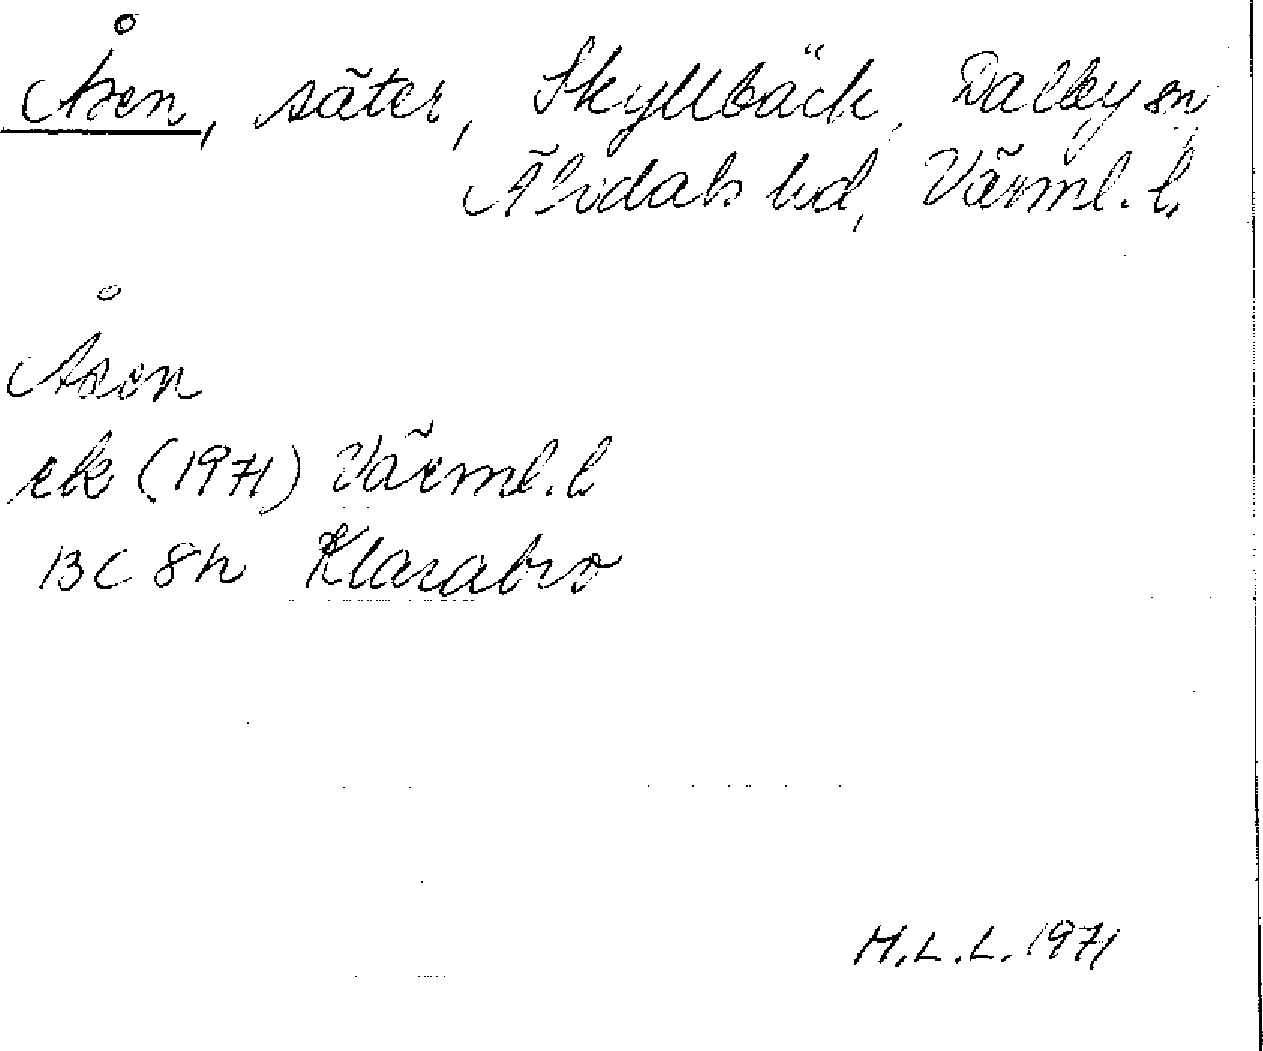 Åsen, säter, Skyllbäck, Dalby sn
Älvdals hd, Värml. l.
Åsen
ek (1971) Värml. l
13 C 8h Klarabro
M.L.L. 1971